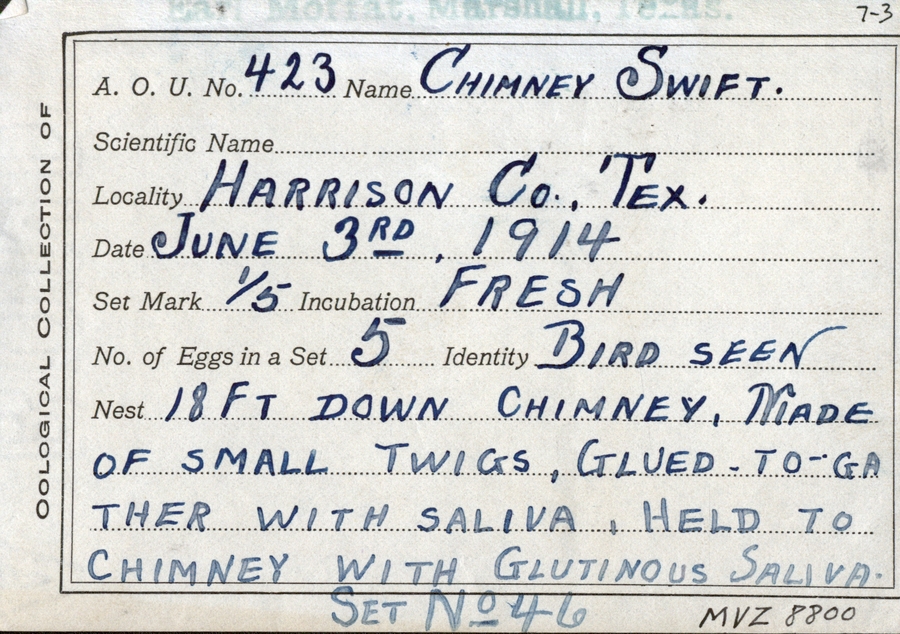 Earl Moffat, Marshall, Texas.
7-3
OOLOGICAL COLLECTION OF
A. O. U. No. 423 Name CHIMNEY SWIFT.
Scientific Name
Locality HARRISON Co., TEX.
Date JUNE 3RD, 1914
Set Mark 1/5 Incubation FRESH
No. of Eggs in a Set 5 Identity BIRD SEEN
Nest 18 FT DOWN CHIMNEY, MADE
OF SMALL TWIGS, GLUED-TO-GA
THER WITH SALIVA, HELD TO
CHIMNEY WITH GLUTINOUS SALIVA.
SET No 46
MVZ 8800